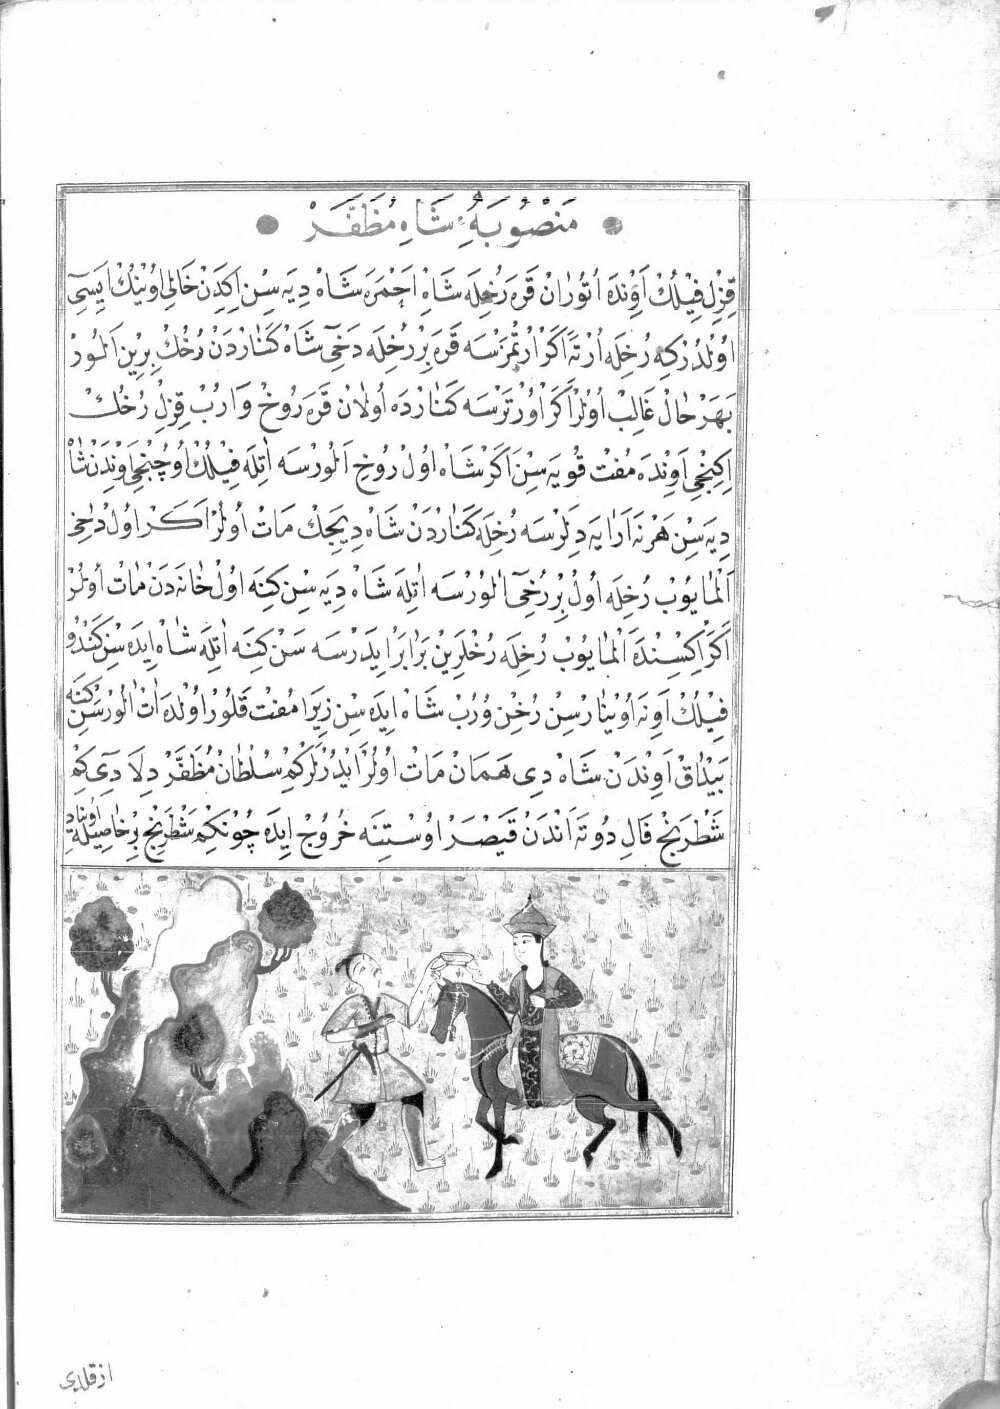 مَنْصُوبَهُ شَاهِ مُظَفَّرْ
قِزِل فِيلُكْ اَوِنْدَه اُتُورَانْ قَرَه رُخِلَه شَاهْ اَحْمَرَه شَاهْ دِيَه سِنْ اِكِدَنْ خَالِي اُويُنُكْ اِيسِى
اُولْدُرْكِه رُخِلَه اُرْتَه اَكَرْ اُرْتْمَزْسَه قَرَه بِرْ رُخِلَه دَخِى شَاهْ كَنَارْدَنْ رُخُكْ بِرِينْ اَلُورْ
بَهَرْحَالْ غَالِبْ اُولُرْ اَكَرْ اُورْتَرْسَه كَنَارْدَه اُولَانْ قَرَه رُوخْ وَارُبْ قِزِلْ رُخُكْ
اِكِنْجِى اَوِنْدَه مُفْتْ قُويَه سِنْ اَكَرْ شَاهْ اُولْ رُوخِ اَلُورْسَه اَتِلَه فِيلُكْ اُوچُنْجِى اَوِنْدَنْ شَاهْ
دِيَه سِنْ هَرْ نَه اَرَايَه دِلَرْسَه رُخِلَه كَنَارْدَنْ شَاهْ دِيِيجِكْ مَاتْ اُولُرْ اَكَرْ اُولْ دَاخِى
اَلْمَايُوبْ رُخِلَه اُولْ بِرْ رُخِى اَلُورْسَه اَتِلَه شَاهْ دِيَه سِنْ كِنَه اُولْ خَانَه دَنْ مَاتْ اُولُرْ
اَكَرْ اِكِسِنْدَه اَلْمَايُوبْ رُخِلَه رُخْلَرِينْ بَرَابَرْ اِيدَرْسَه سَنْ كِنَه اَتِلَه شَاهْ اِيدَه سِنْ كَنْدُو
فِيلُكْ اَوِنَه اُوينَارْسِنْ رُخِنْ وُرُبْ شَاهْ اِيدَه سِنْ زِيرَا مُفْتْ قَلُورْ اُولْدَه اَتْ اَلُورْسِنْ كِنَه
بَيْدَاقْ اَوِنْدَنْ شَاهْ دِى هَمَانْ مَاتْ اُولُرْ اَيْدُرْلَرْكِمْ سُلْطَانْ مُظَفَّرْ دِلَا دِى كِمْ
شَطْرَنْجْ فَالِ دُوتَه اَنْدَنْ قَيْصَرْ اُوسْتِنَه خُرُوجْ اِيدَه چُونْكِمْ شَطْرَنْجْ بِرْ خَاصِيلَه اُوينَادِ
از قلدى